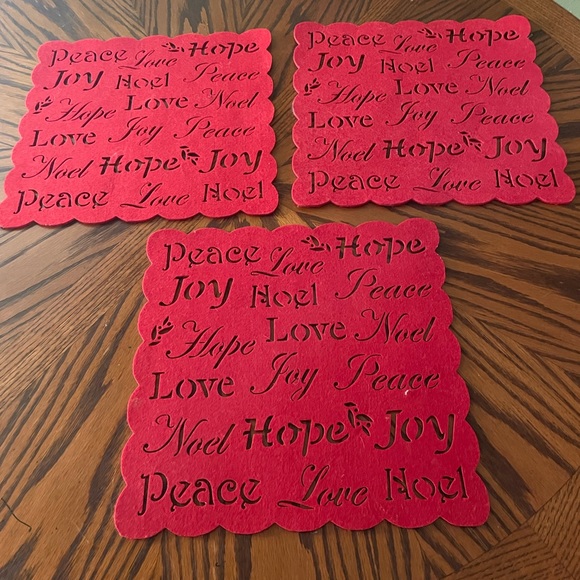 Peace Love Hope
Joy Noel Peace
Hope Love Noel
Love Joy Peace
Noel Hope Joy
Peace Love Noel
Peace Love Hope
Joy Noel Peace
Hope Love Noel
Love Joy Peace
Noel Hope Joy
Peace Love Noel
Peace Love Hope
Joy Noel Peace
Hope Love Noel
Love Joy Peace
Noel Hope Joy
Peace Love Noel